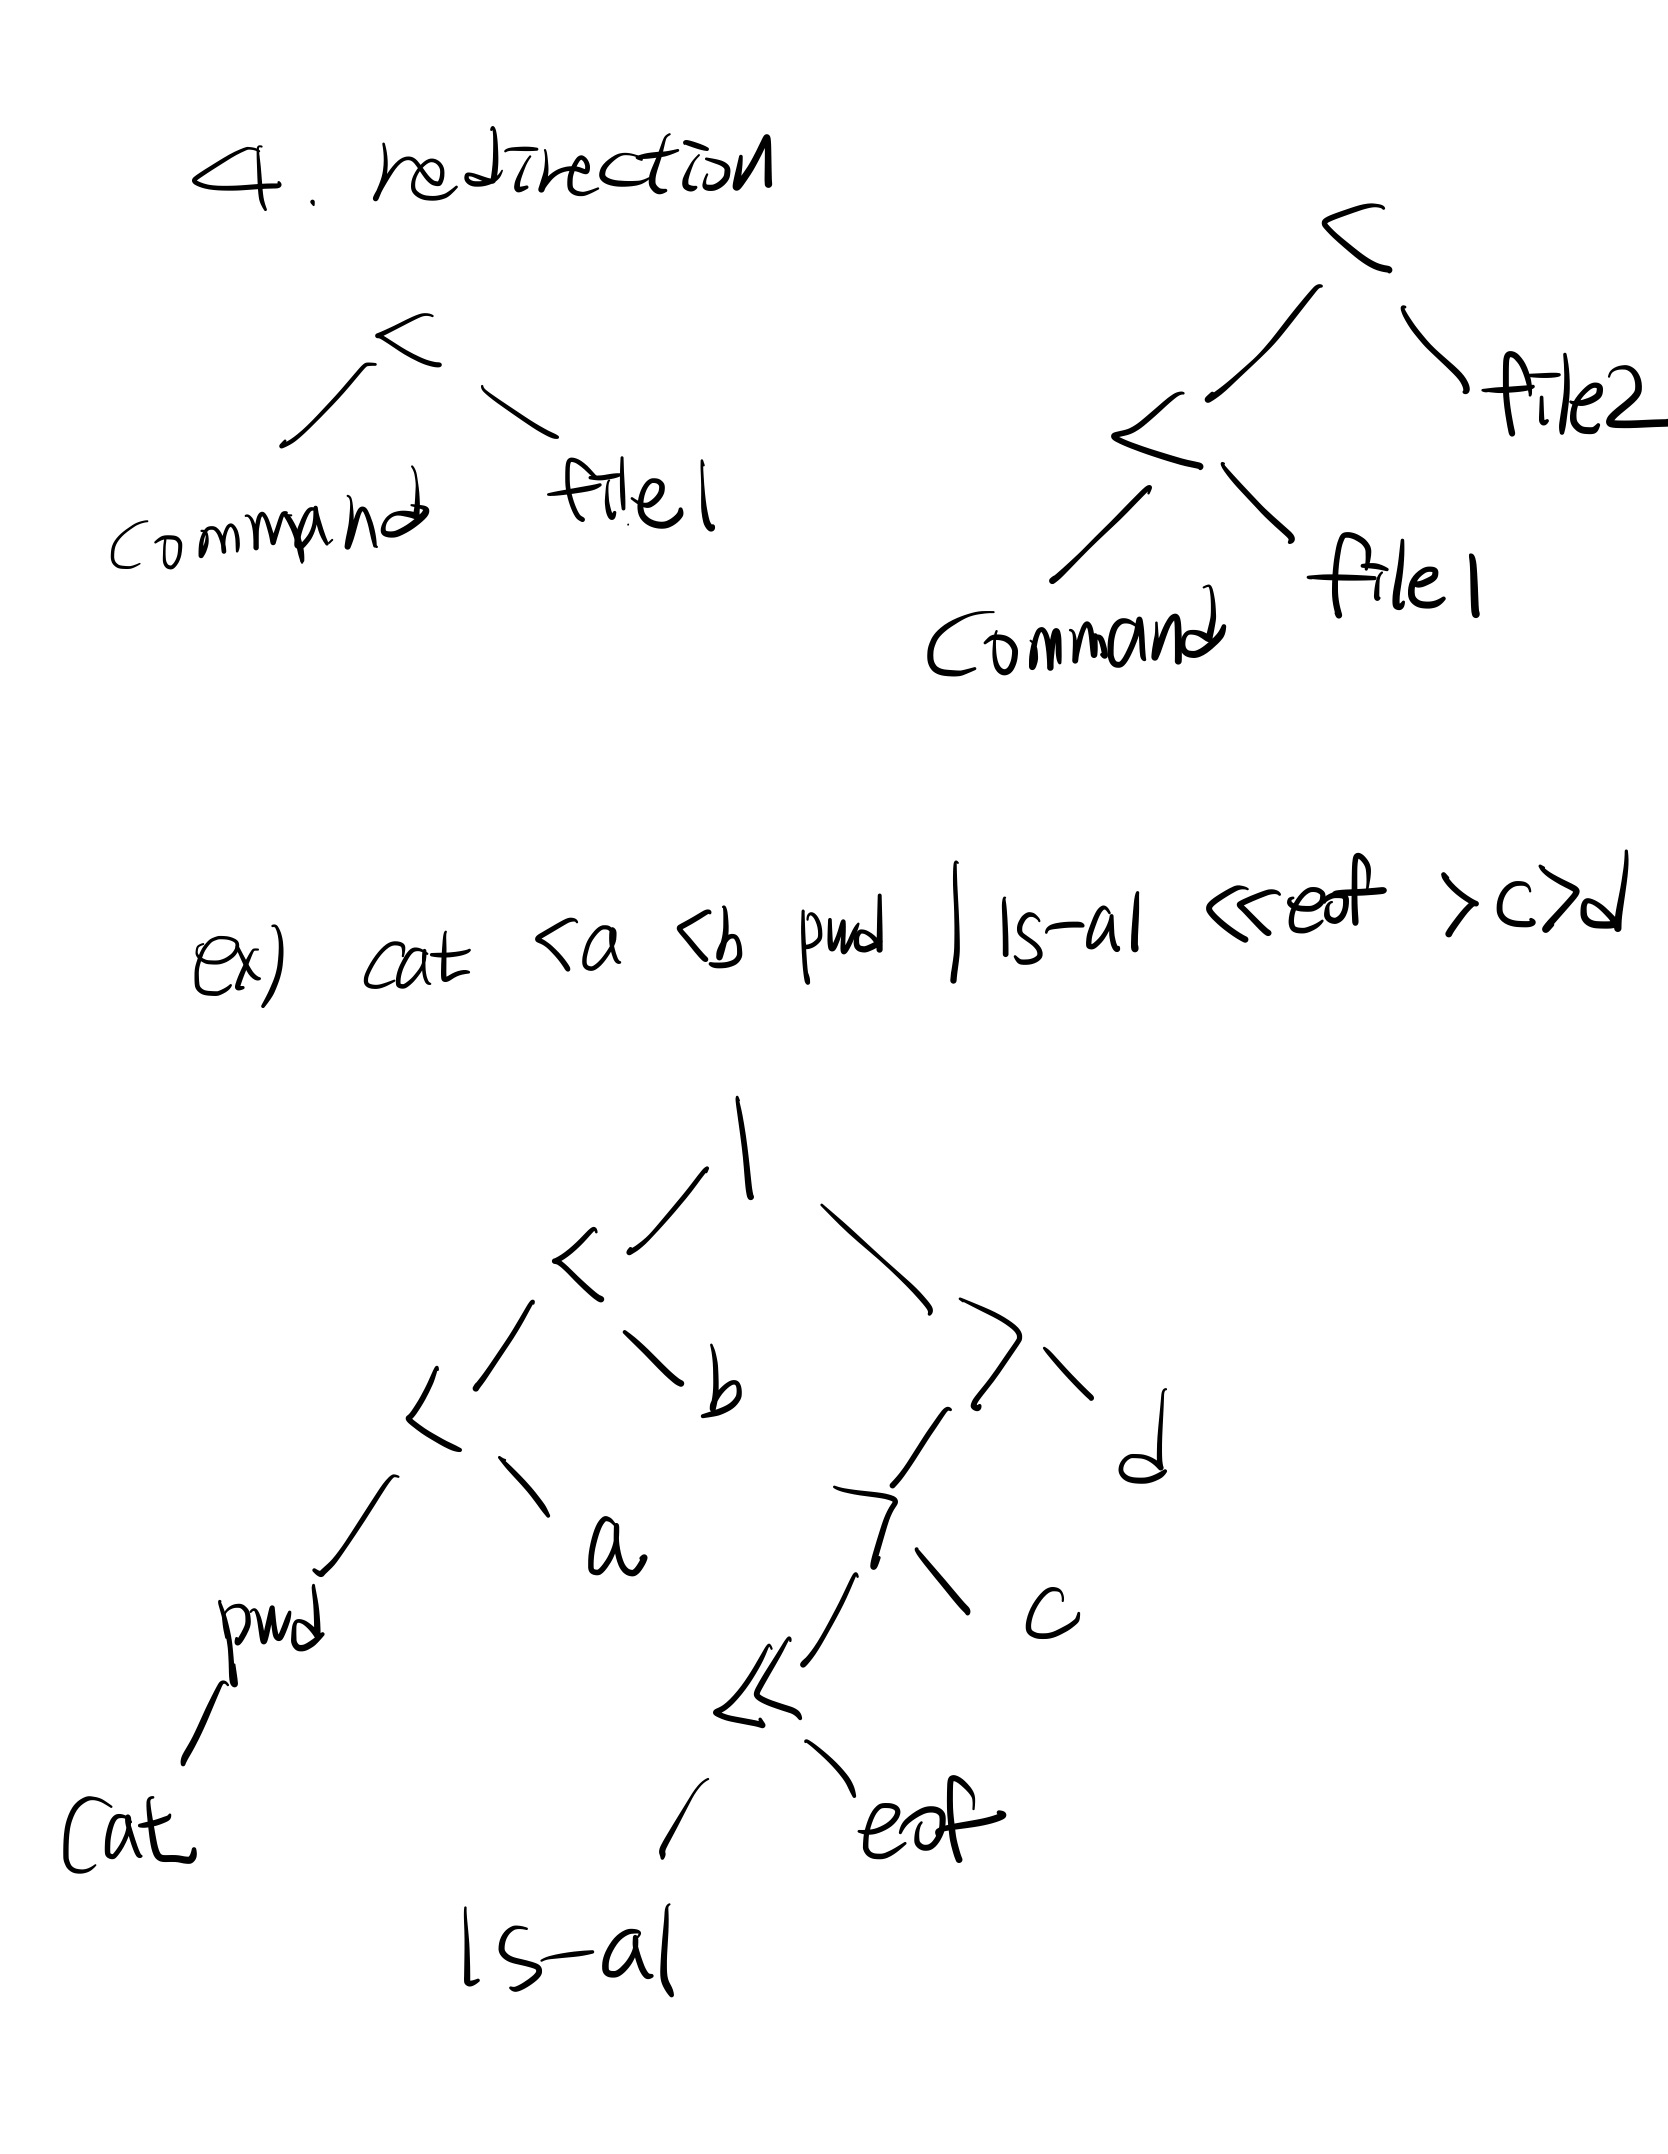 4. redirection
<
<
file2
command
file1
<
command
file1
ex) cat <a <b pwd | ls-al <<eof >c>d
|
<
>
b
d
<
>
a
c
pwd
<<
cat
eof
ls-al